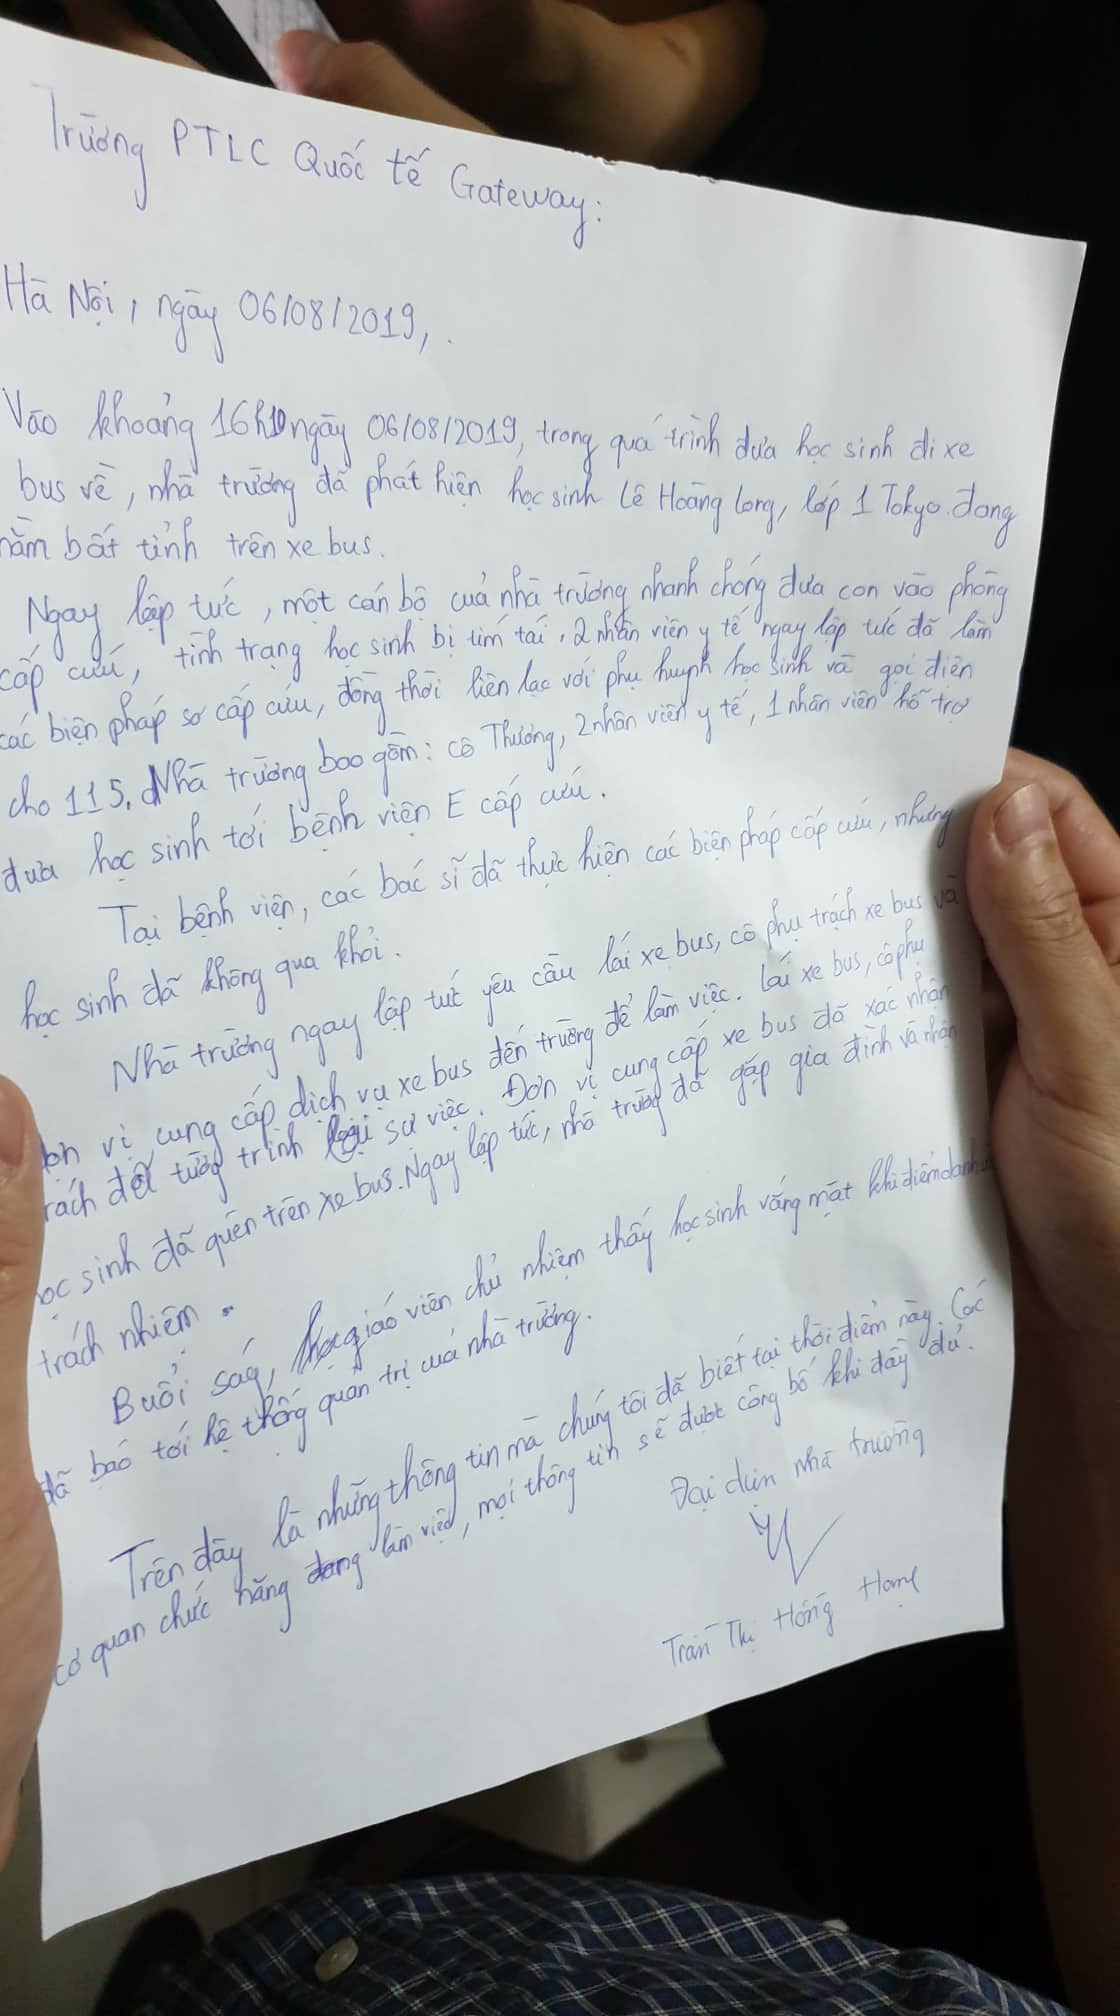 Trường PTLC Quốc tế Gateway:
Hà Nội, ngày 06/08/2019,.
Vào khoảng 16h10 ngày 06/08/2019, trong quá trình đưa học sinh đi xe
bus về, nhà trường đã phát hiện học sinh Lê Hoàng Long, lớp 1 Tokyo đang
nằm bất tỉnh trên xe bus.
Ngay lập tức, một cán bộ của nhà trường nhanh chóng đưa con vào phòng
cấp cứu, tình trạng học sinh bị tím tái, 2 nhân viên y tế ngay lập tức đã làm
các biện pháp sơ cấp cứu, đồng thời liên lạc với phụ huynh học sinh và gọi điện
cho 115. Nhà trường bao gồm: cô Thương, 2 nhân viên y tế, 1 nhân viên hỗ trợ
đưa học sinh tới bệnh viện E cấp cứu.
Tại bệnh viện, các bác sĩ đã thực hiện các biện pháp cấp cứu, nhưng
học sinh đã không qua khỏi.
Nhà trường ngay lập tức yêu cầu lái xe bus, cô phụ trách xe bus và
đơn vị cung cấp dịch vụ xe bus đến trường để làm việc. Lái xe bus, cô phụ
trách để tường trình sự việc. Đơn vị cung cấp xe bus đã xác nhận
học sinh đã quên trên xe bus. Ngay lập tức, nhà trường đã gặp gia đình và nhận
trách nhiệm.
Buổi ság, giáo viên chủ nhiệm thấy học sinh vắng mặt khi điểm danh
đã báo tới hệ thống quản trị của nhà trường.
Trên đây là những thông tin mà chúng tôi đã biết tại thời điểm này. Các
cơ quan chức năng đang làm việc, mọi thông tin sẽ được công bố khi đầy đủ.
Đại diện nhà trường
Trần Thị Hồng Hạnh